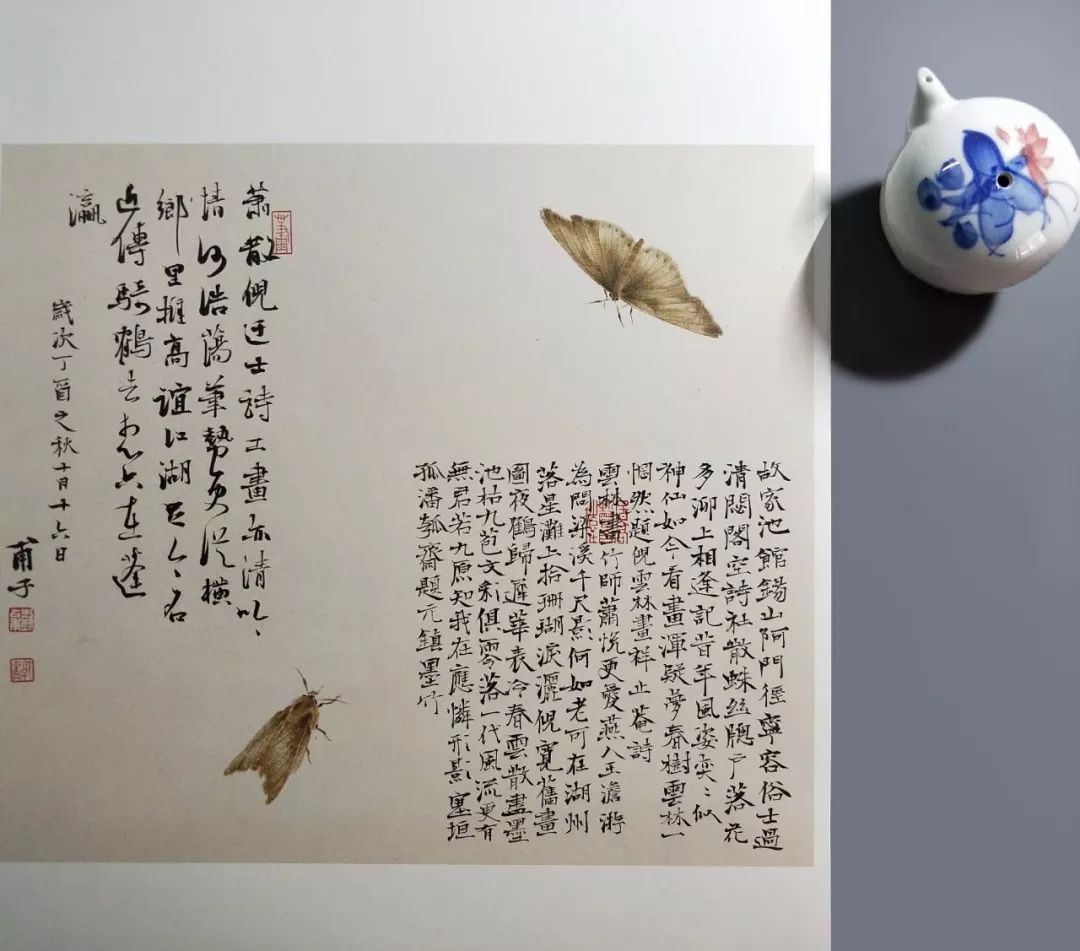 故家池館錫山阿門徑寧容俗士過
清閟閣空詩社散蛛絲牕戶落花
多泖上相逢記昔年風姿奕〻似
神仙如今看畫渾疑夢春樹雲林一
惘然題倪雲林畫祥止菴詩
雲林畫竹師蕭悅更愛燕八王澹游
為問梁溪千尺影何如老可在湖州
落星灘上拾珊瑚淚灑倪寬舊畫
圖夜鶴歸遲華表冷春雲散盡墨
池枯九苞文彩俱零落一代風流更有
無君若九原知我在應憐形影塞垣
孤潘瓠齋題元鎮墨竹
蕭散倪迂士詩工畫亦清吟
情何浩蕩筆勢更從橫
鄉里推高誼江湖足令名
近傳騎鶴去在蓬
瀛
歲次丁酉之秋十月十六日
甫子